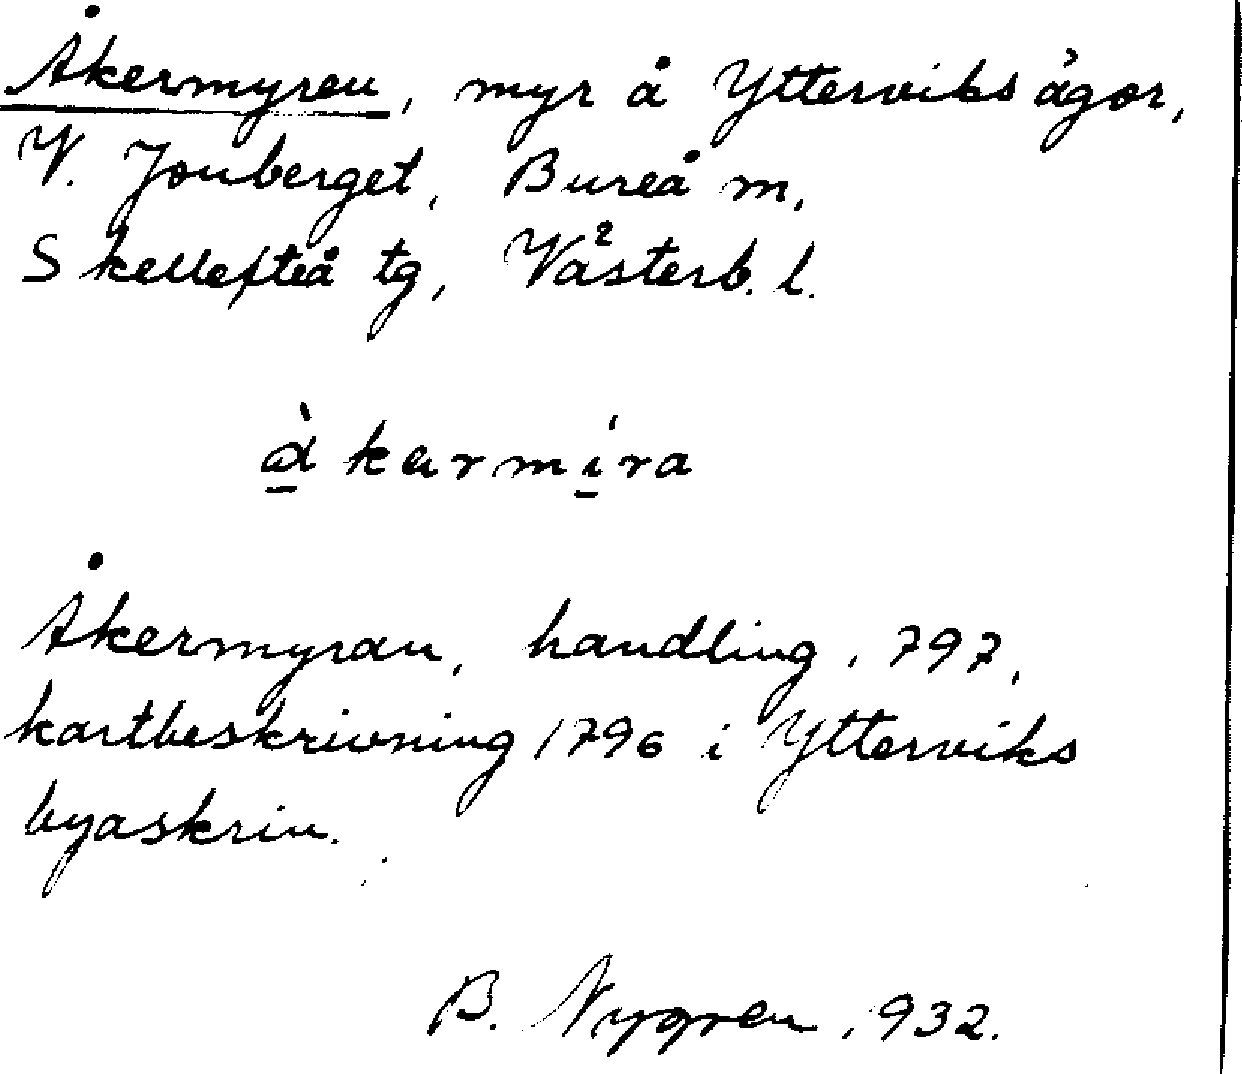 Åkermyren, myr å Ytterviks ägor,
V. Jonberget, Bureå m,
Skellefteå tg, Västerb. l.
ɑ̀karmíra
Åkermyran, handling 1797,
kartbeskrivning 1796 i Ytterviks
byaskrin.
B. Nygren 1932.